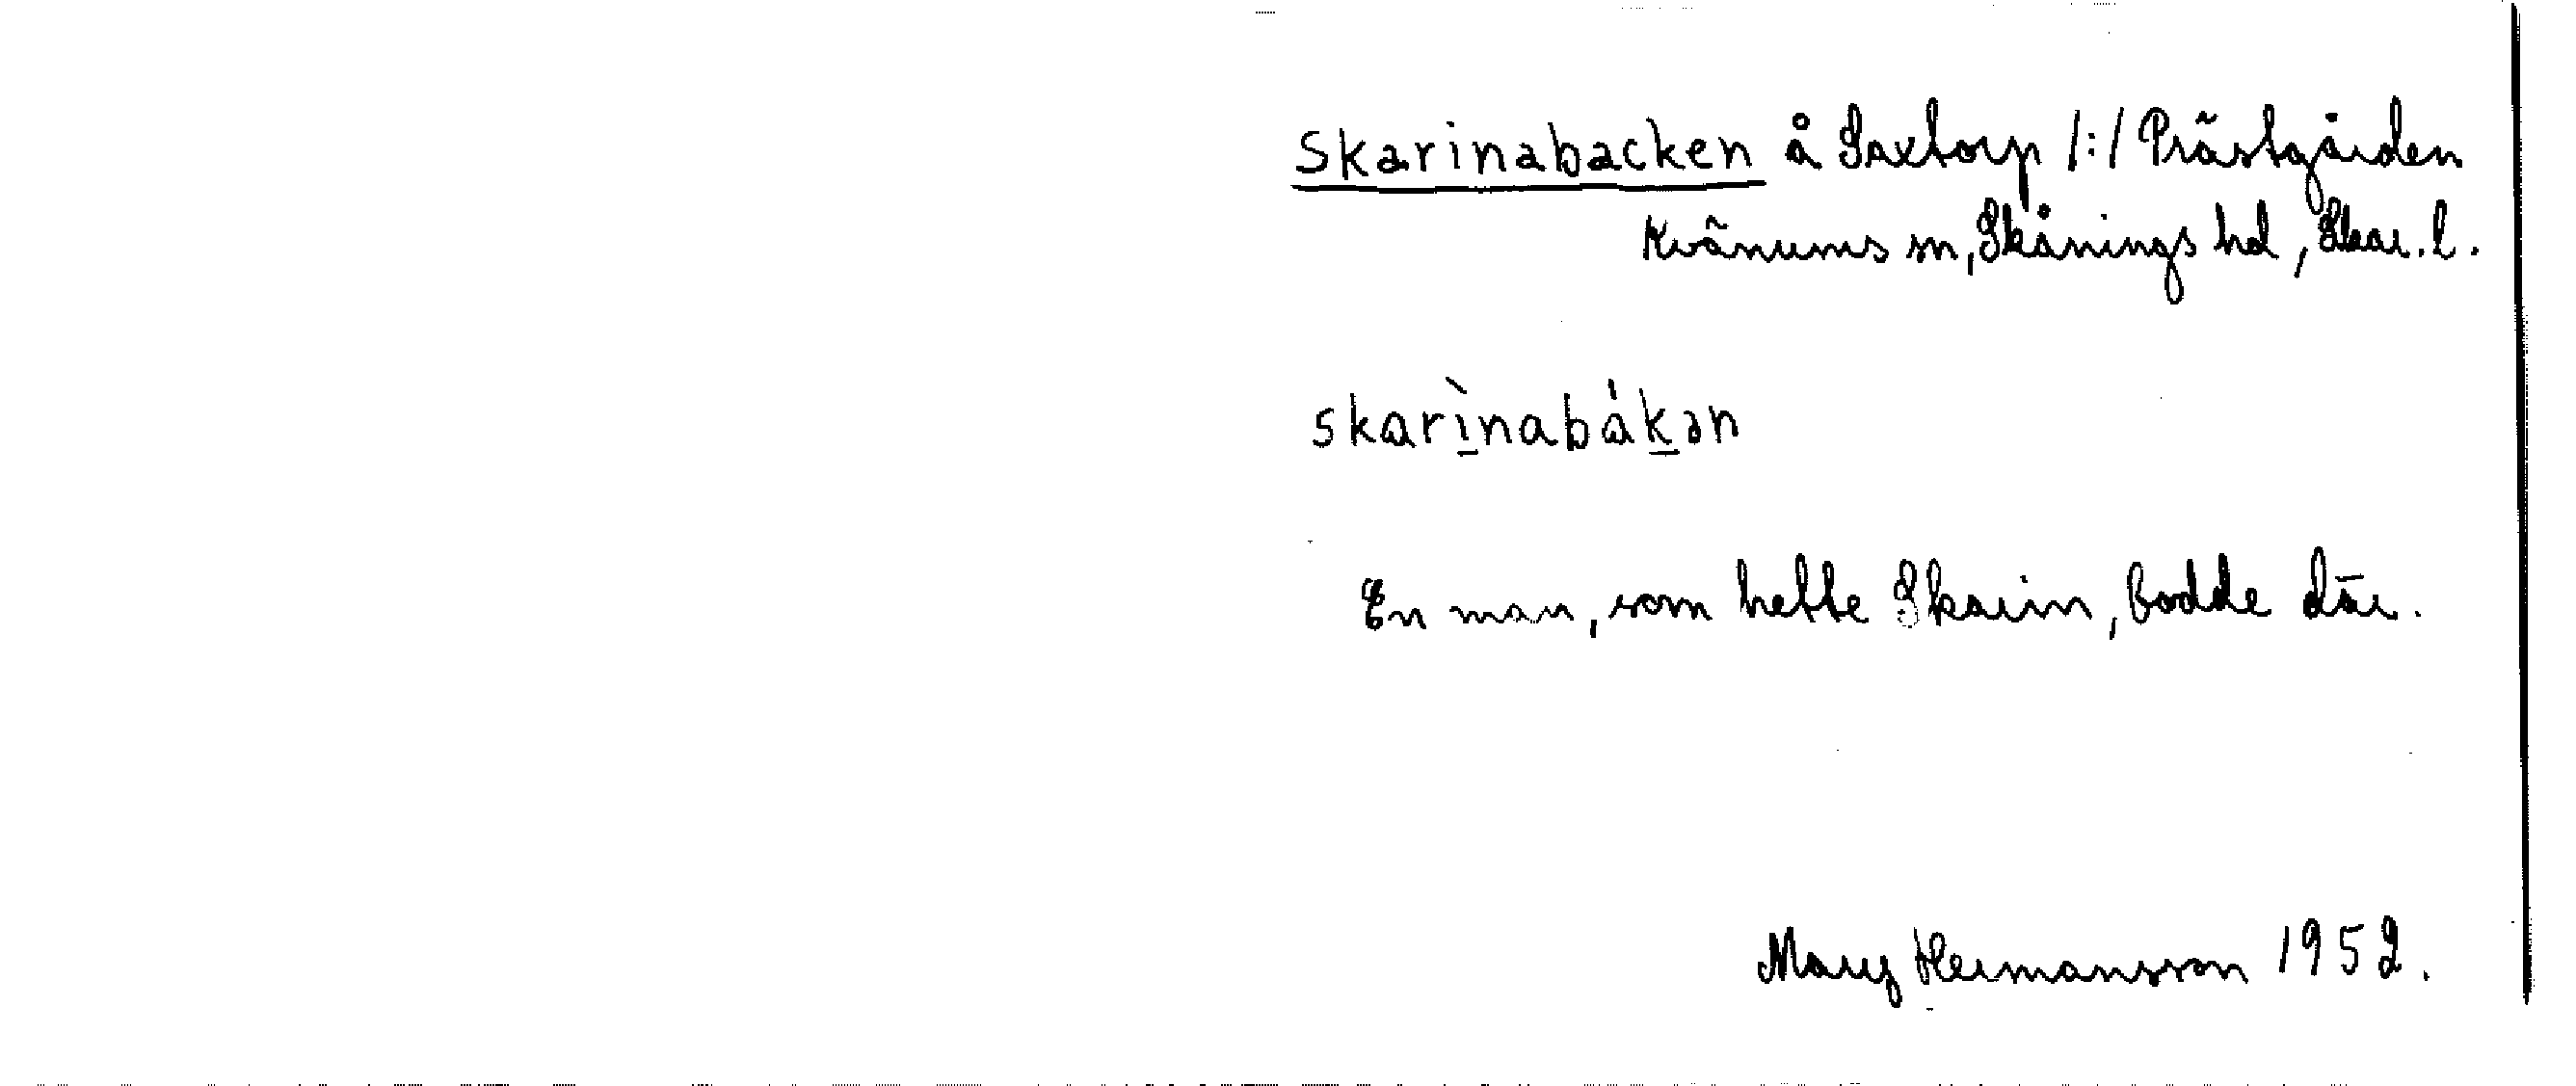 Skarinabacken å Saxtorp /:/ Prästgården
Kvänums sn, Skånings hd, Skar. l.
skarìnabákən
En man, som hette Skarin, bodde där.
Mary Hermansson 1952.